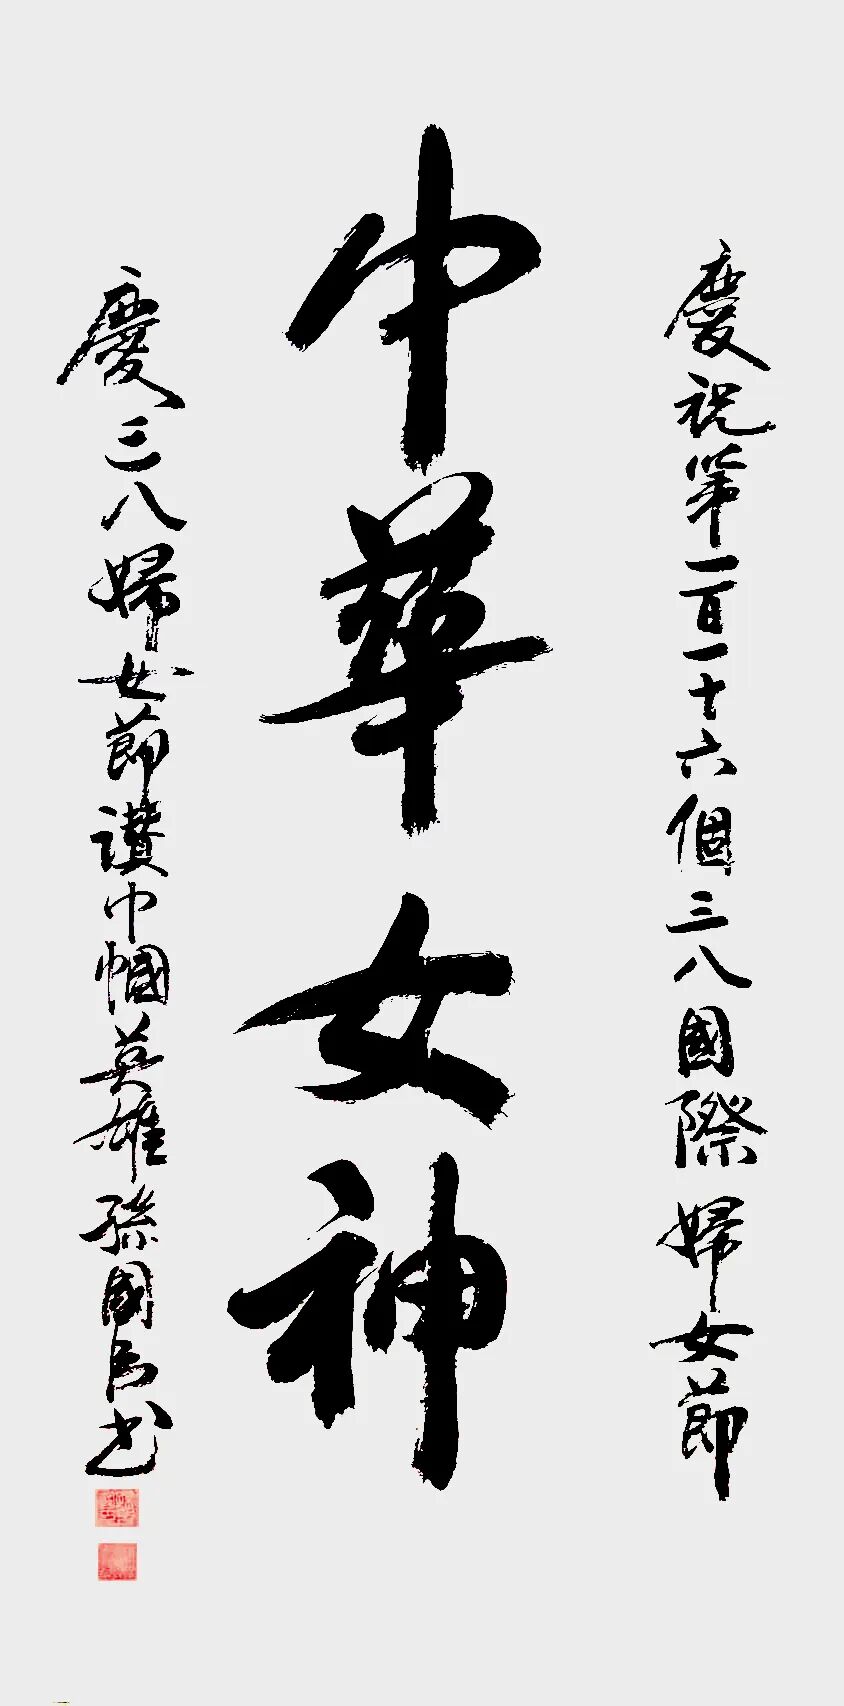 慶祝第一百一十六個三八國際婦女節
中華女神
慶三八婦女節讚巾幗英雄孫國民書